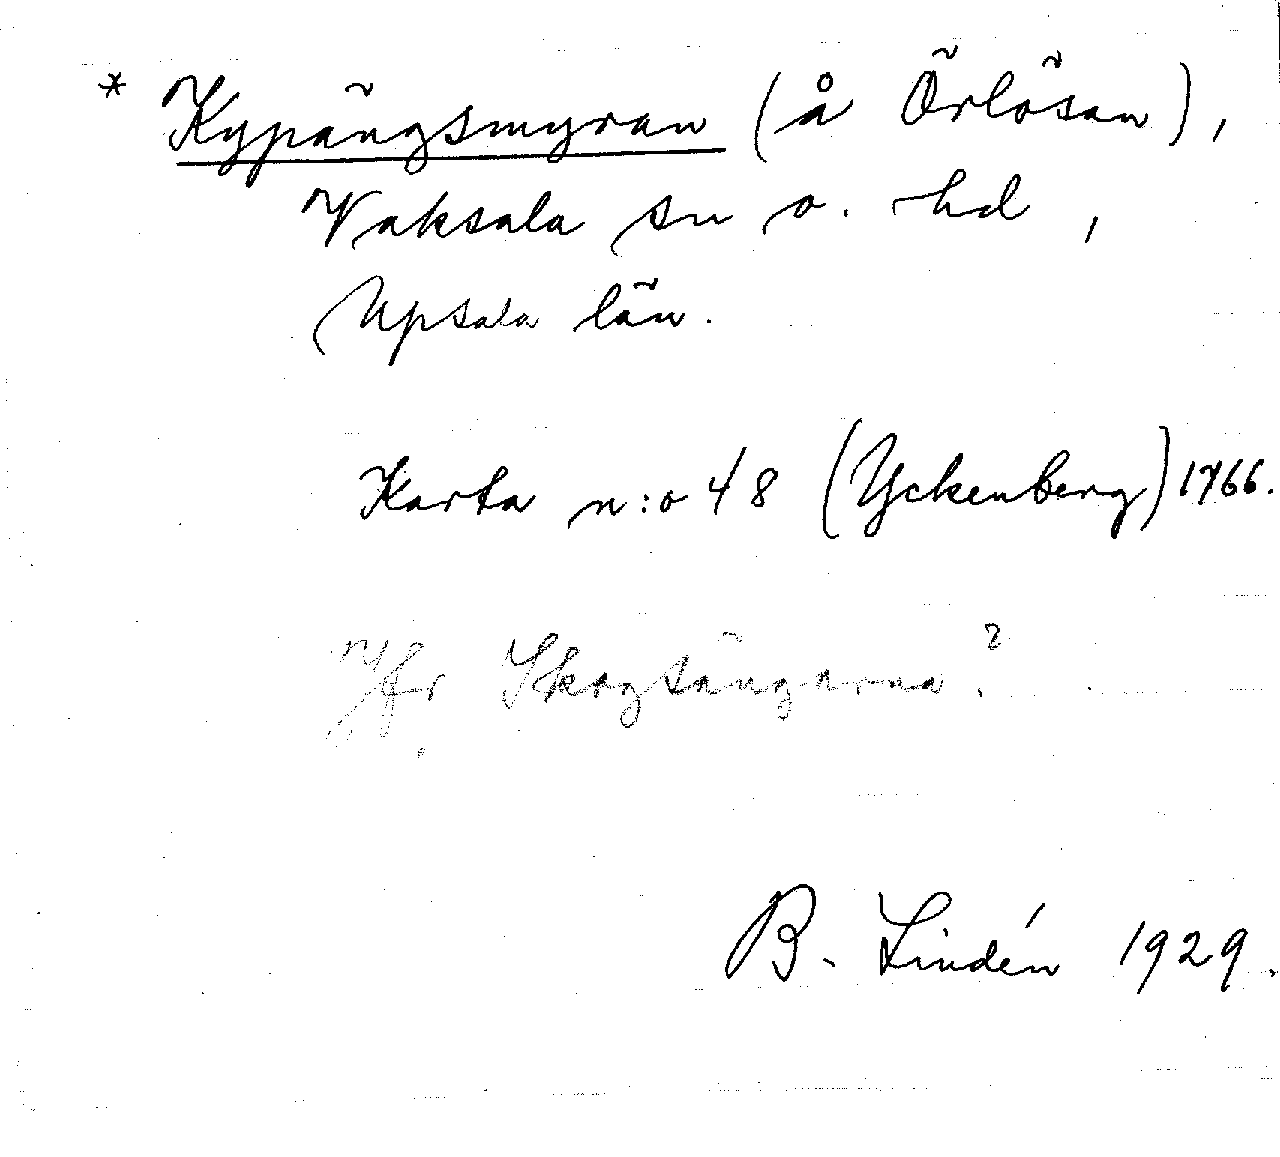 * Kypängsmyran (å Örlösan),
Vaksala sn o. hd,
Upsala län.
Karta n:o 48 (Yckenberg) 1766.
Jfr Skogsängarna?
B. Lindén 1929.